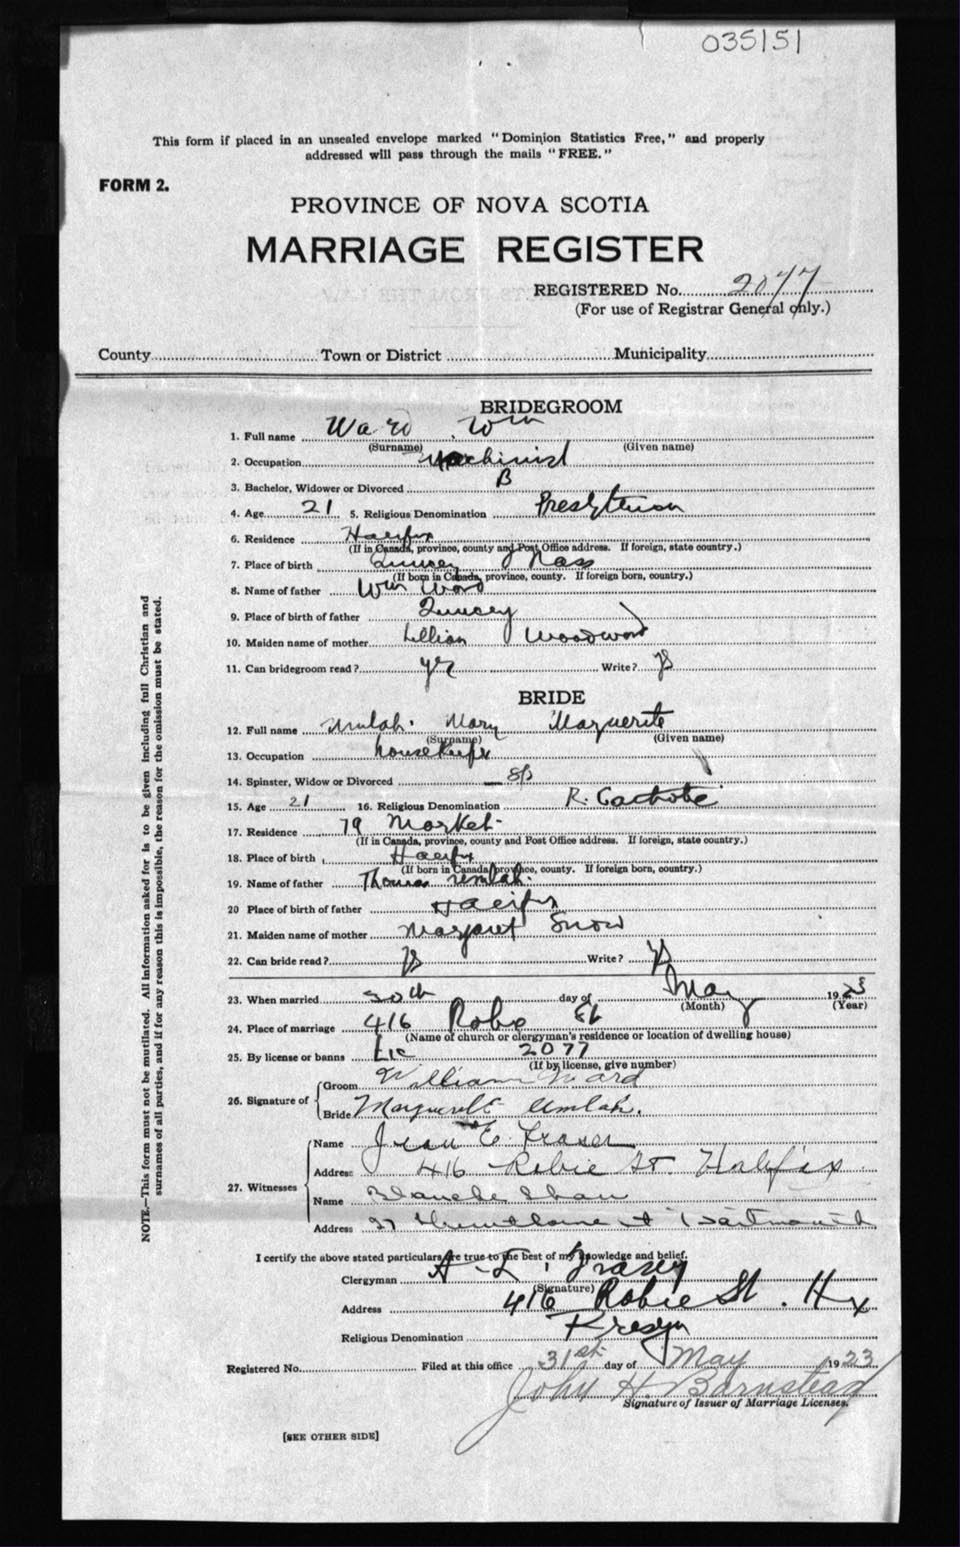 035151
This form if placed in an unsealed envelope marked "Dominion Statistics Free," and properly
addressed will pass through the mails "FREE."
FORM 2.
PROVINCE OF NOVA SCOTIA
MARRIAGE REGISTER
REGISTERED No. 2077
(For use of Registrar General only.)
County Town or District Municipality
BRIDEGROOM
1. Full name Ward Wm
(Surname) (Given name)
2. Occupation Machinist
3. Bachelor, Widower or Divorced B
4. Age 21 5. Religious Denomination Presbyterian
6. Residence Halifax
(If in Canada, province, county and Post Office address. If foreign, state country.)
7. Place of birth Quincey Mass
(If born in Canada, province, county. If foreign born, country.)
8. Name of father Wm Ward
9. Place of birth of father Quincey
10. Maiden name of mother Lillian Woodward
11. Can bridegroom read? yes Write? ys
BRIDE
12. Full name Umlah. Mary Marguerite
(Surname) (Given name)
13. Occupation housekeeper
14. Spinster, Widow or Divorced Sp
15. Age 21 16. Religious Denomination R. Catholic
17. Residence 79 Market
(If in Canada, province, county and Post Office address. If foreign, state country.)
18. Place of birth Halifax
(If born in Canada, province, county. If foreign born, country.)
19. Name of father Thomas Umlah.
20 Place of birth of father Halifax
21. Maiden name of mother Margaret Snow
22. Can bride read? ys Write? ys
23. When married 30th day of May 1923
(Month) (Year)
24. Place of marriage 416 Robie St
(Name of church or clergyman's residence or location of dwelling house)
25. By license or banns Lic 2077
(If by license, give number)
26. Signature of
Groom William Ward
Bride Marguerite Umlah.
27. Witnesses
Name Jean E. Fraser
Address 416 Robie St. Halifax
Name Blanche Shaw
Address 27 St Dartmouth
I certify the above stated particulars are true to the best of my knowledge and belief.
Clergyman A. L. Fraser
(Signature)
Address 416 Robie St. Hx
Religious Denomination Presyn
Registered No. Filed at this office 31st day of May 1923
John H. Barnstead
Signature of Issuer of Marriage Licenses.
[SEE OTHER SIDE]
NOTE.—This form must not be mutilated. All information asked for is to be given including full Christian and
surnames of all parties, and if for any reason this is impossible, the reason for the omission must be stated.